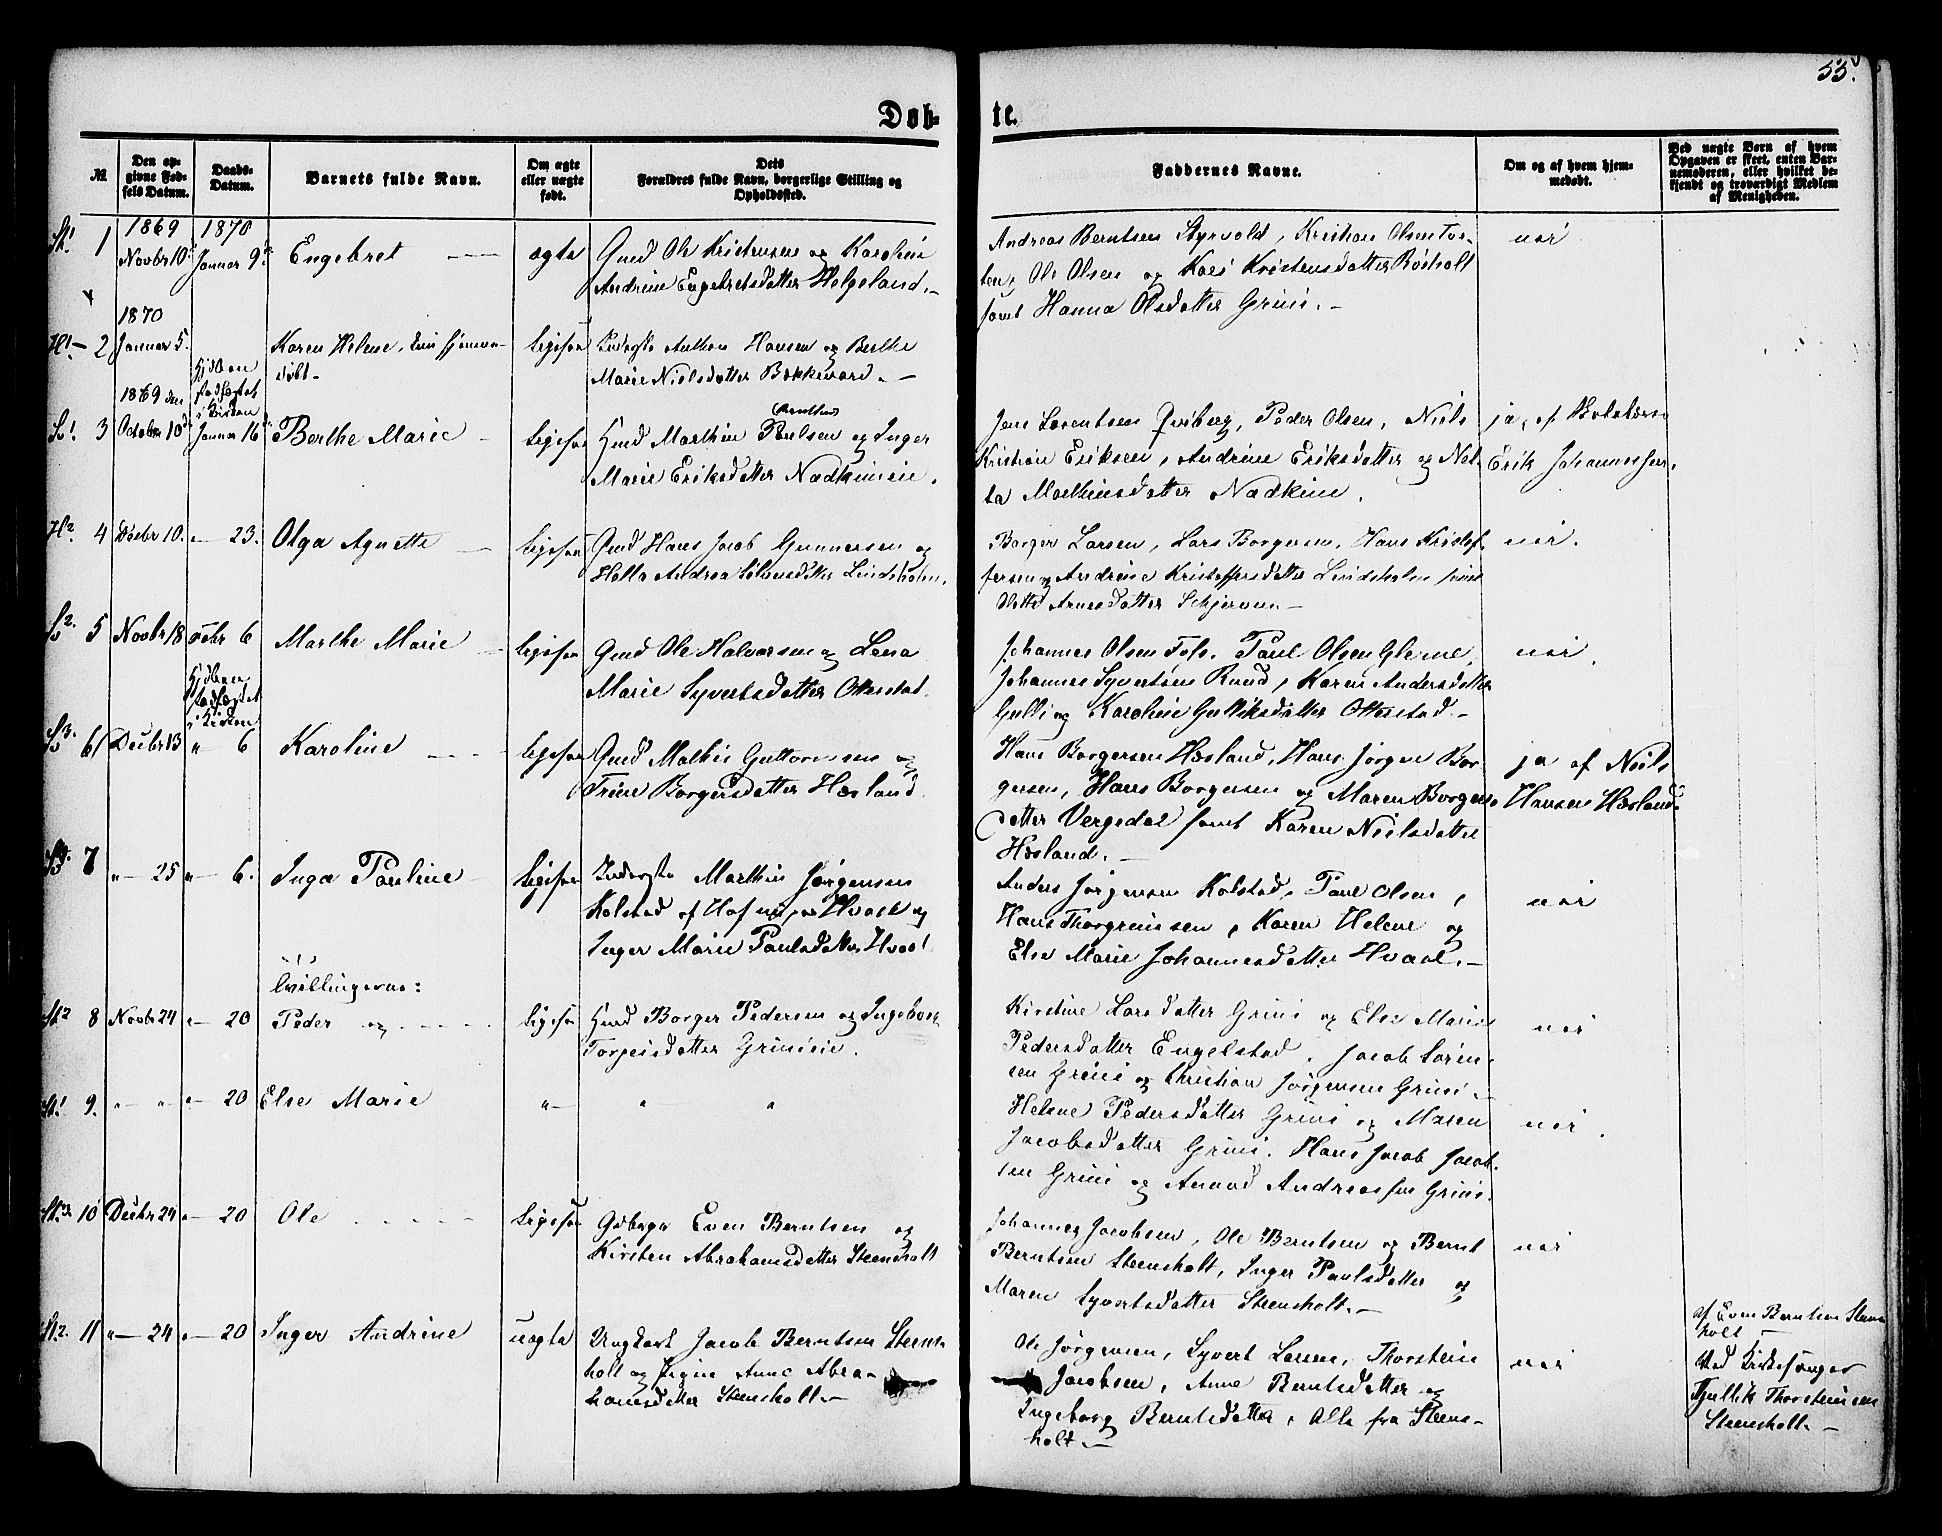 55.
Døb-
te.
№
Den op-
givne Fød-
sels Datum.
Daabs-
Datum.
Barnets fulde Navn.
Om ægte
eller uægte
født.
Dets
Forældres fulde Navn, borgerlige Stilling og
Opholdssted.
Faddernes Navne.
Om og af hvem hjem-
medøbt.
Ved uægte Børn af hvem
Opgaven er skeet, enten Bar-
nemoderen, eller hvilket be-
kjendt og troværdigt Medlem
af Menigheden.
1869
1870
1
Novbr 10
Januar 9
Engebret
ægte
Gmd Ole Kristensen og Karoline
Andrine Engebretsdatter Helgeland.
Andreas Berntsen Styrvold, Kristian Olsen
Ole Olsen og Kristensdatter
samt Hanna Olsdatter Grini.
nei
1870
2
Januar 5.
Karen Helene,
døbt
ligesaa
Inderste Anthon Hansen og Berthe
Marie Nielsdatter Bakkevard.
1869 den
stadfæstet
i Kirken
3
October 10
Januar 16
Berthe Marie
ligesaa
Hmd Marthin Paulsen og Inger
Marie Eriksdatter Nadkimeie.
Jens Lorentsen Qvisberg, Peder Olsen, Niels
Kristian Eriksen, Andrine Eriksdatter og
Marthinsdatter Nadkim.
ja, af
Erik Johannessen
4
Decbr 10.
" 23.
Olga Agnette
ligesaa
Gmd Hans Jacob Gunnersen og
Andrea Lindsholm.
Borger Larsen, Lars Borgersen, Hans Kristof-
fersen og Andrine Kristoffersdatter Lindsholm samt
Arnesdatter
nei.
5
Novbr 18
Febr 6
Marthe Marie
ligesaa
Gmd Ole Halvorsen og Lena
Marie Syvertsdatter Otterstad.
Johannes Olsen Fos. Paul Olsen
Johannes Syvertsen Ruud, Karen Andersdatter
Gulli og Karoline Gulliksdatter Otterstad.
nei.
stadfæstet
i Kirken
6
Decbr 13
" 6
Karoline
ligesaa
Gmd Mathis Guttormsen og
Trine Borgersdatter Hæsland
Hans Borgersen Hæsland, Hans Jørgen Bor-
gersen, Hans Borgersen og Maren Borgers-
datter Vergedal samt Karen Nielsdatter
Hæsland.
ja af Niels
Hansen Hæsland.
7
" 25
" 6.
Inga Pauline
ligesaa
Inderste Marthin Jørgensen
Kolstad af Hof og
Inger Marie Paulsdatter
Anders Jørgensen Kolstad, Paul Olsen,
Hans Thorgrimsen, Karen Helene og
Else Marie Johannesdatter
nei
Tvillingerne:
8
Novbr 24
" 20
Peder og
ligesaa
Hmd Borger Pedersen og Ingeborg
Torgeisdatter Grinieie.
Kirstine Larsdatter Grini og Else Marie
Pedersdatter Engelstad. Jacob Søren-
sen Grini og Christian Jørgensen Grini.
nei
9.
" "
" 20
Else Marie
" " "
Helene Pedersdatter Grini og Maren
Jacobsdatter Grini. Hans Jacob Jacob-
sen Grini og Amund Andreassen Grini.
nei.
10
Decbr 24
" 20
Ole
ligesaa
Even Berntsen og
Kirsten Abrahamsdatter Steensholt
Johannes Jacobsen, Ole Berntsen og Bernt
Berntsen Steensholt, Inger Paulsdatter og
Maren Syvertsdatter Steensholt.
nei
11
" 24
" 20
Inger Andrine
uægte
Ungkarl Jacob Berntsen Steens-
holt og Pigen Anne Abra-
hamsdatter Steensholt
Ole Jørgensen, Syvert Larsen, Thorstein
Jacobsen, Anne Berntsdatter og
Ingeborg Berntsdatter, Alle fra Steens-
holt.
nei
af Even Berntsen Steens-
holt
Ved Kirkesanger
Gullik Thorsteinsen
Steensholt.